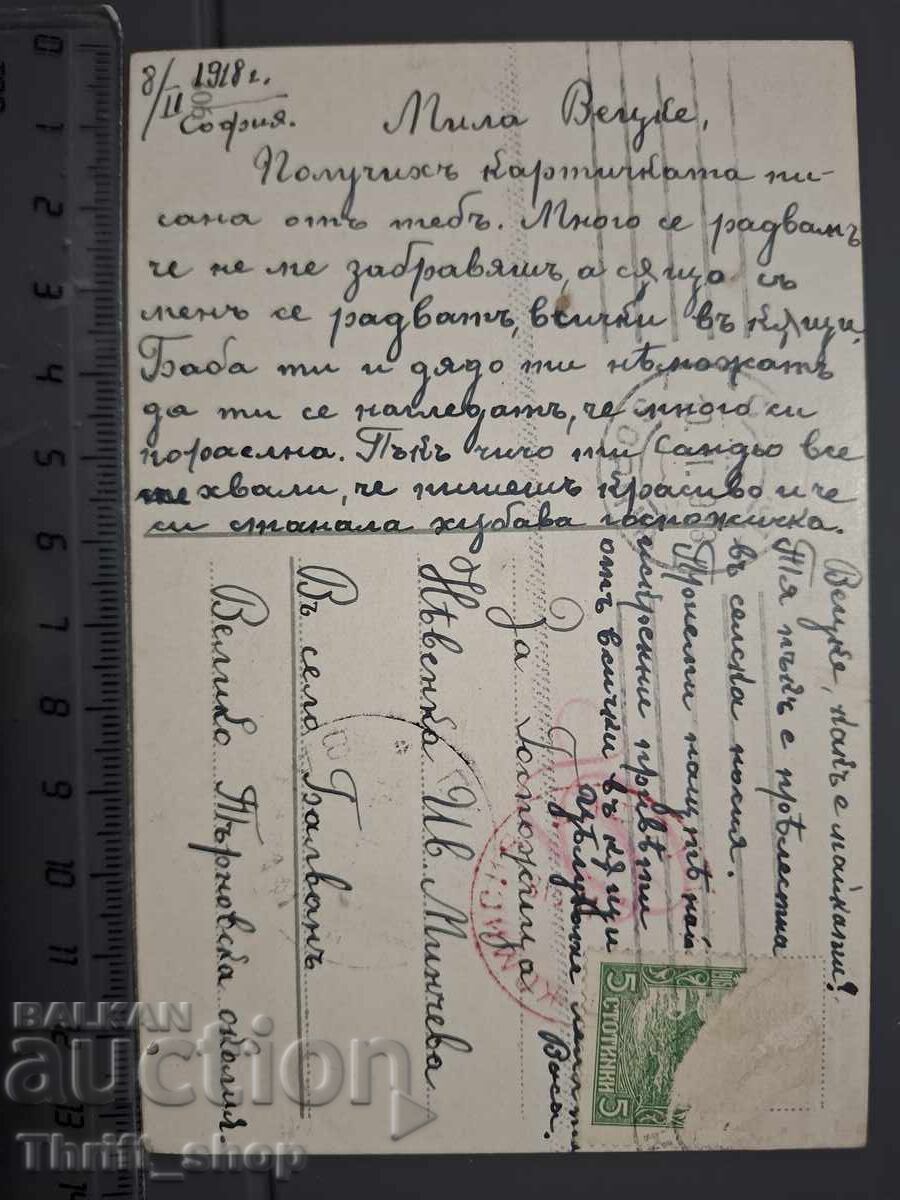 8/II 1918 г.
София.
Мила Вецке,
Получихъ картичката пи-
сана отъ тебъ. Много се радвамъ
че не ме забравяшъ, а сѫщо съ
менъ се радватъ, всички въ кѫщи.
Баба ти и дядо ти не можатъ
да ти се нагледатъ, че много си
порасла. Пъкъ чичо ти Сандьо все
те хвали, че пишешъ красиво и че
си станала хубава госпожичка.
Вецке, какъ е майка ти?
Тя пъкъ е прѣлестна
въ селска носия.
Приеми нашитѣ най
искренни привѣти
отъ всички въ кѫщи
Цѣлувки
Васа.
За Госпожица
Нѣвенка Ив. Минчева
Въ село Балванъ
Велико Търновска околия.
5 СТОТИНКИ 5
0 1 2 3 4 5 6 7 8 9 10 11 12 13
BALKAN
auction
Thrift_shop